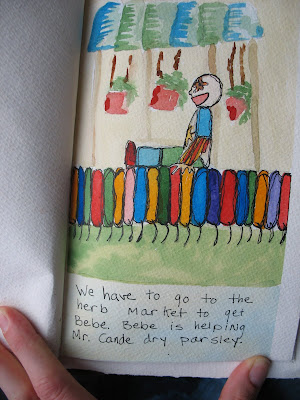 We have to go to the
herb market to get
Bebe. Bebe is helping
Mr. Cande dry parsley.